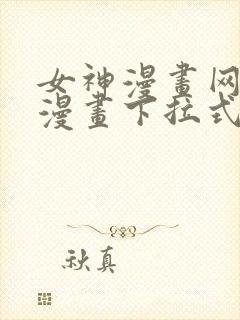 女神漫畫网
漫畫下拉式
秋真